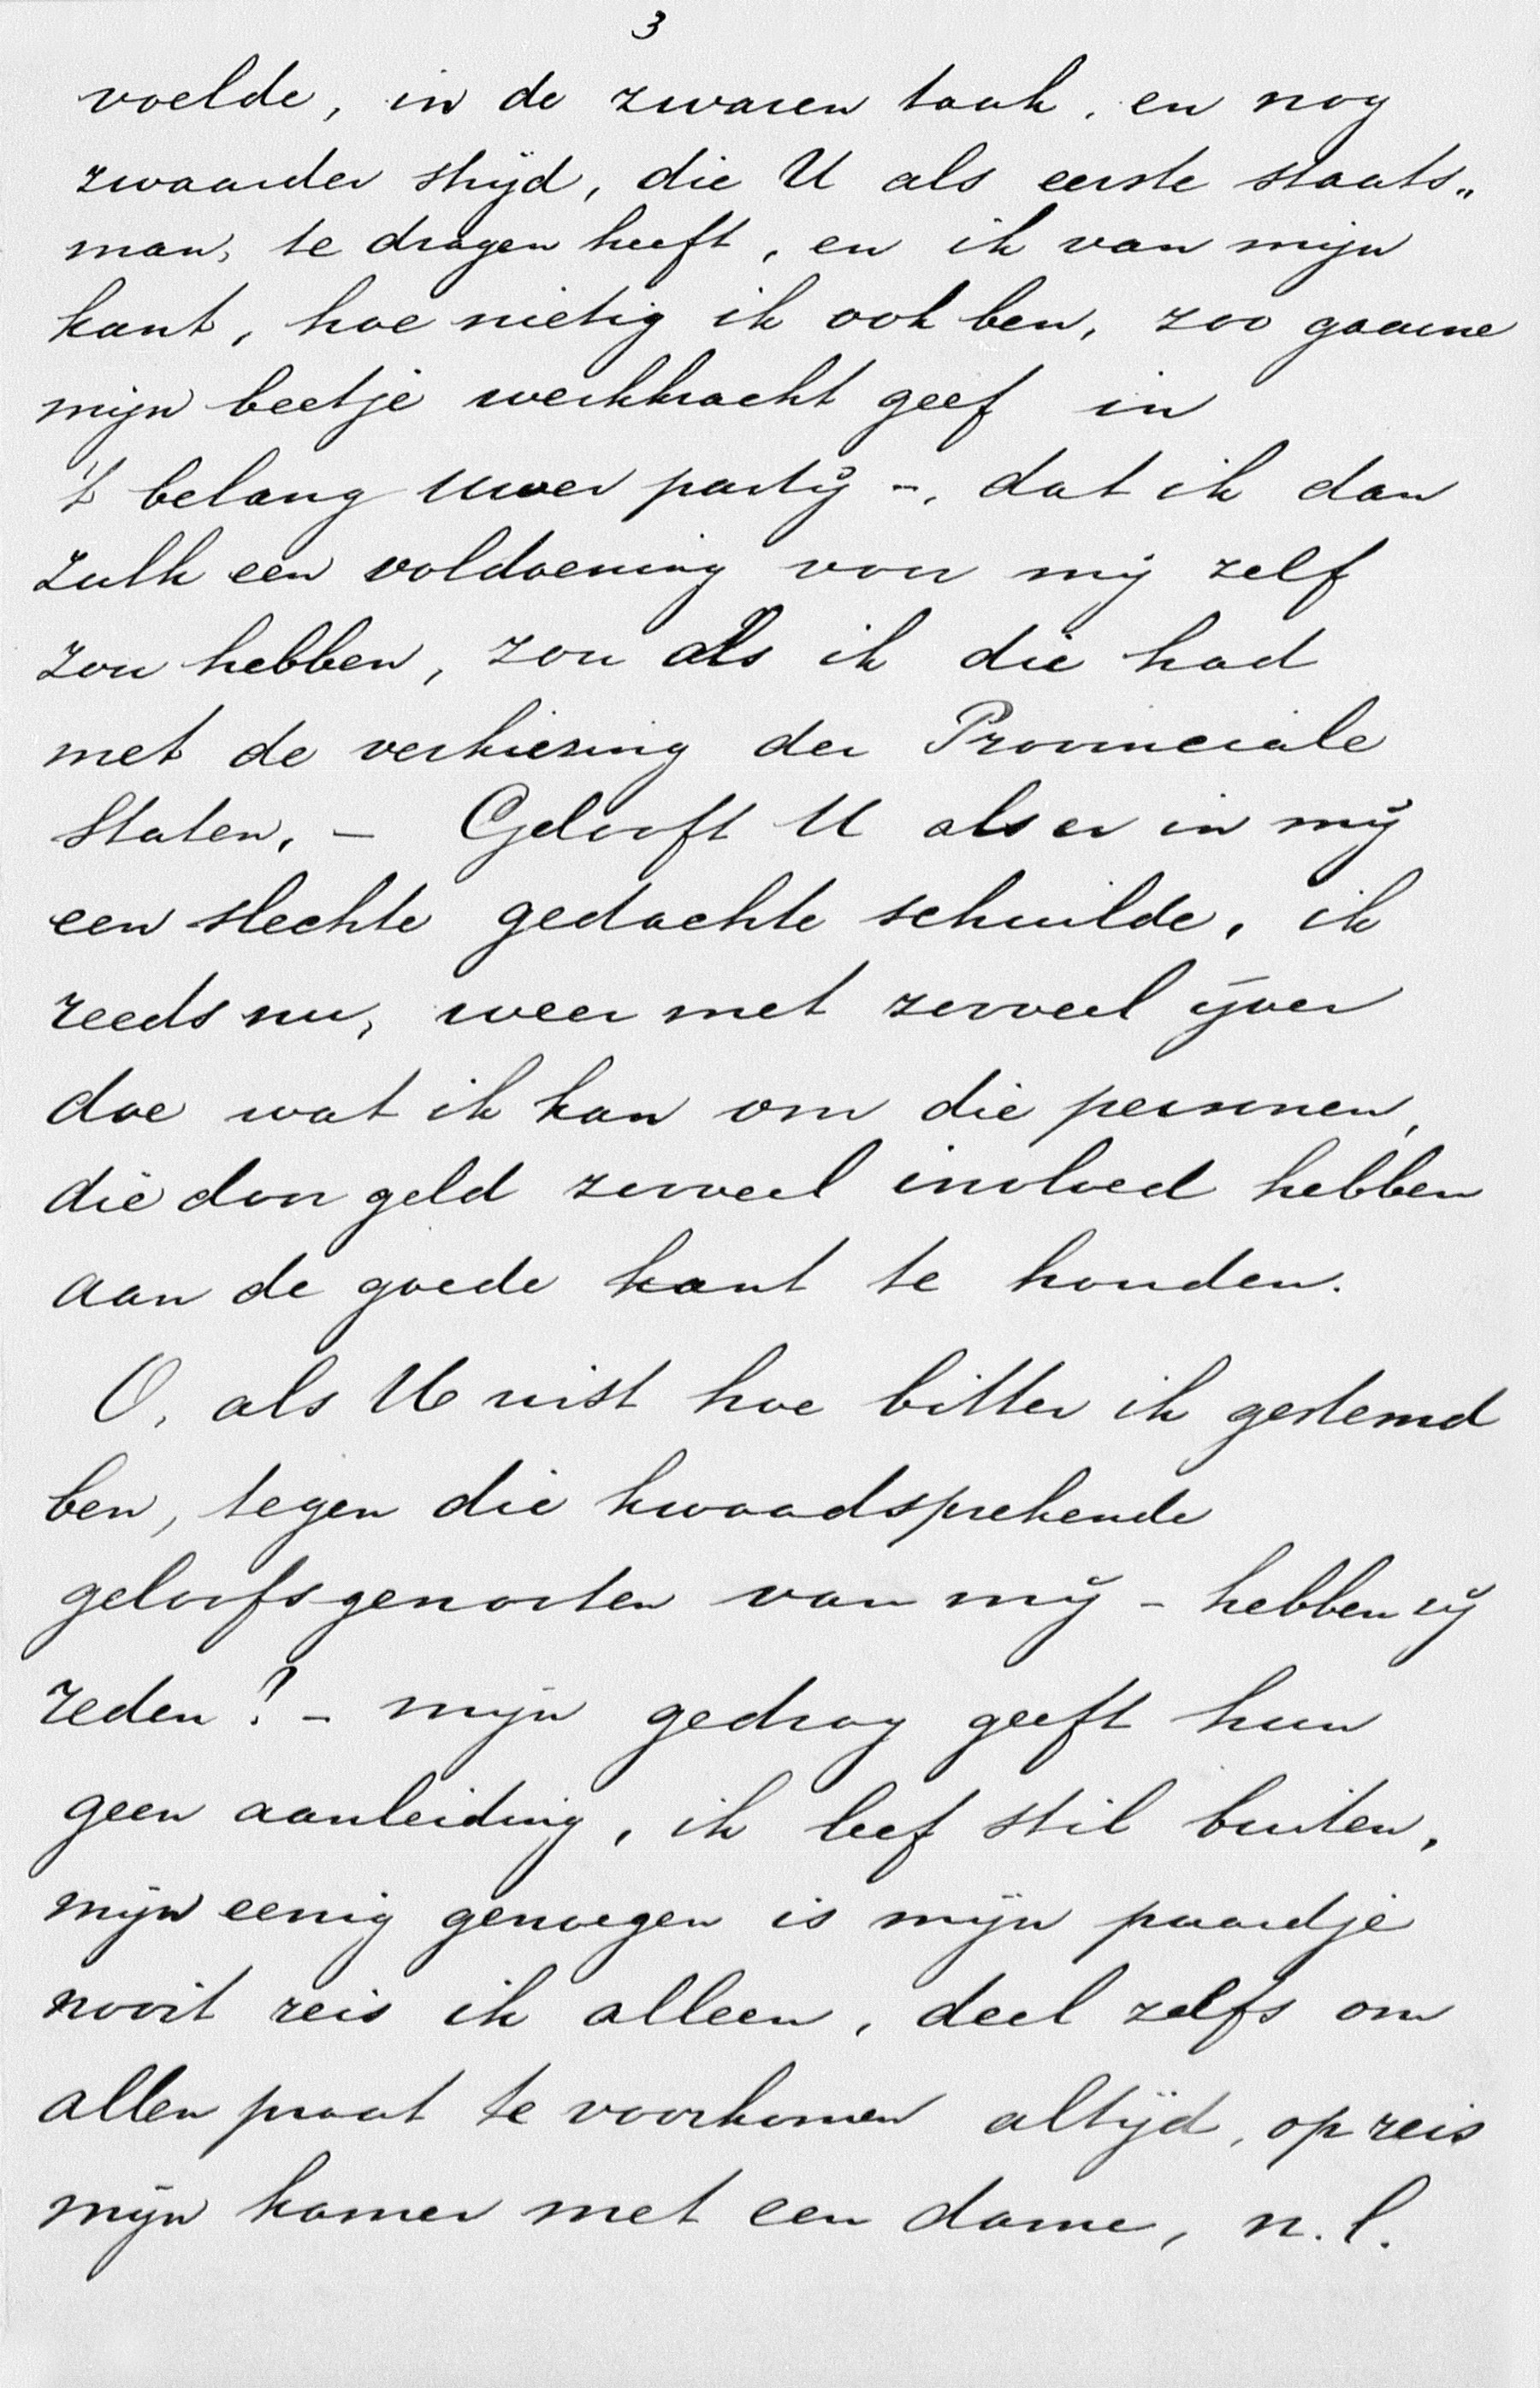 3
voelde, in de zwaren taak, en nog
zwaarder strijd, die U als eerste staats„
man, te dragen heeft, en ik van mijn
kant, hoe nietig ik ook ben, zoo gaarne
mijn beetje werkkracht geef in
't belang uwer partij -, dat ik dan
zulk een voldoening voor mij zelf
zou hebben, zou als ik die had
met de verkiezing der Provinciale
Staten. - Gelooft U als er in mij
een slechte gedachte schuilde, ik
reeds nu, weer met zooveel ijver
doe wat ik kan om die personen,
die door geld zooveel invloed hebben
aan de goede kant te houden.
O, als U wist hoe bitter ik gestemd
ben, tegen die kwaadsprekende
geloofsgenooten van mij - hebben zij
reden? - mijn gedrag geeft hun
geen aanleiding, ik leef stil buiten,
mijn eenig genoegen is mijn paardje
nooit reis ik alleen, deel zelfs om
allen praat te voorkomen altijd, op reis
mijn kamer met een dame, n.l.